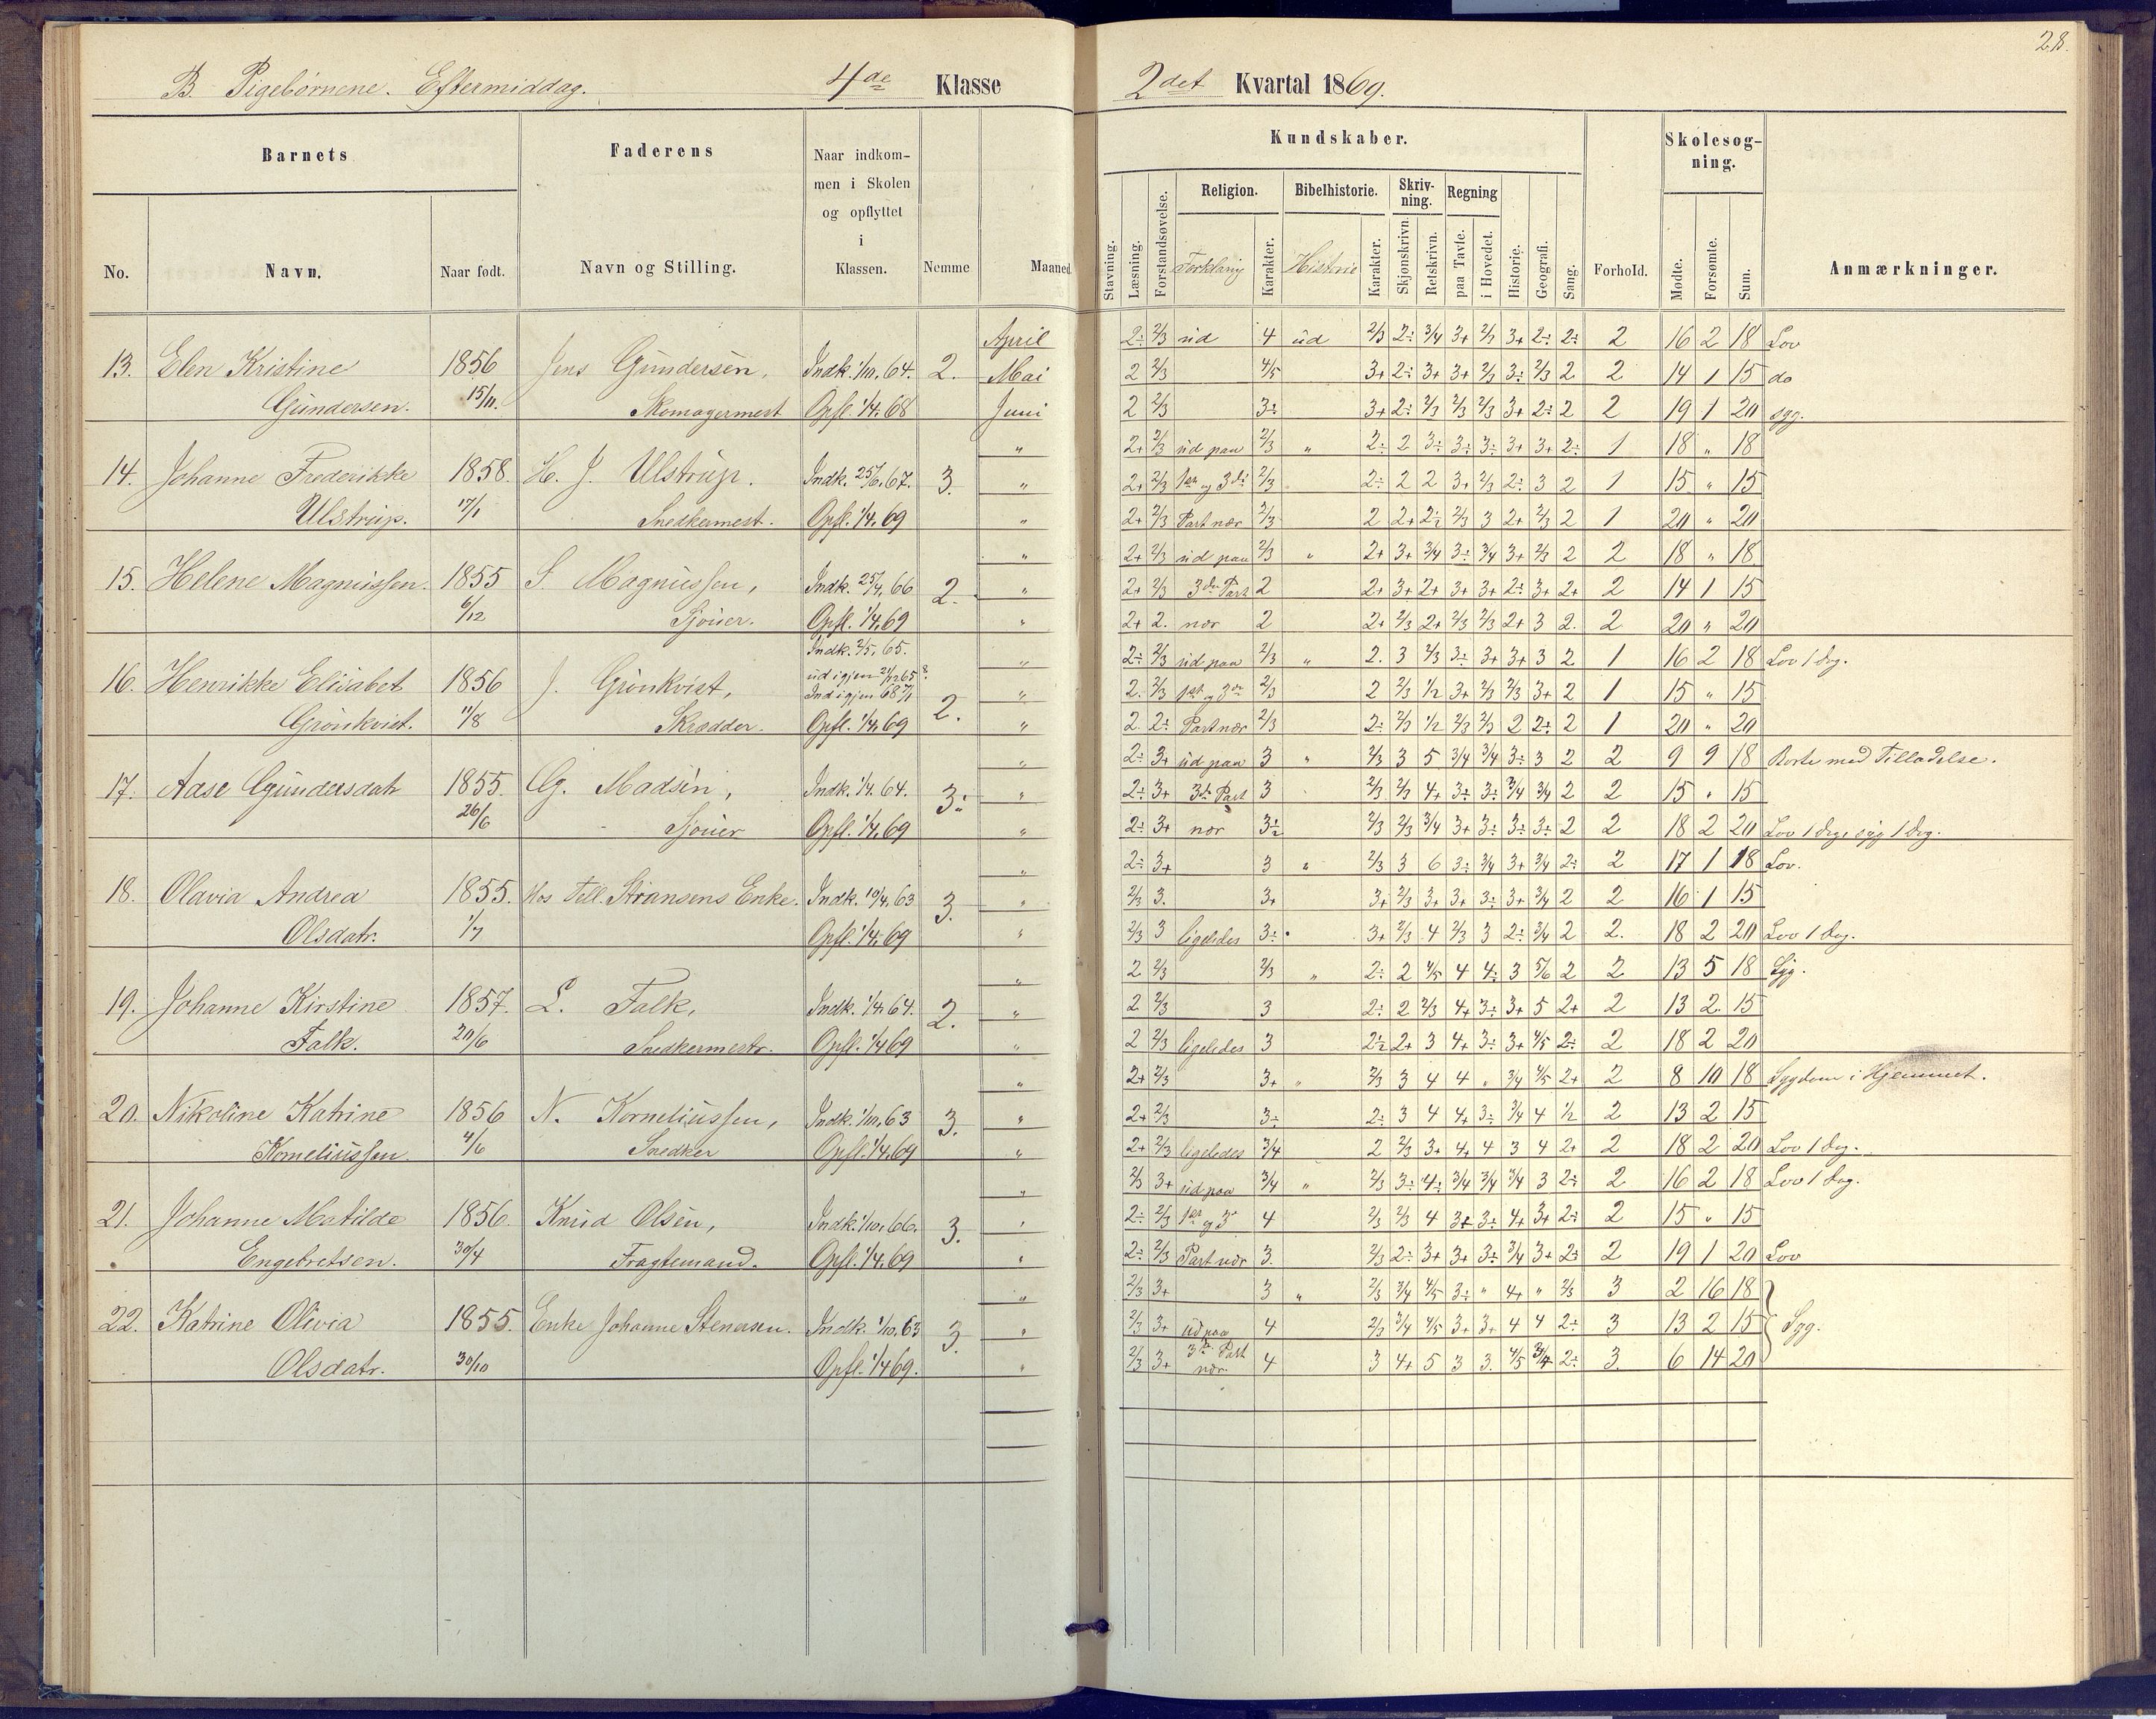 28.
B. Pigebørnene. Eftermiddag. 4de Klasse 2det Kvartal 1869.
Barnets Faderens Naar indkom-
men i Skolen
og opflyttet
i
Klassen. Nemme Maaned
No. Navn. Naar født. Navn og Stilling.
Kundskaber. Skolesøg-
ning.
Stavning. Læsning. Forstandsøvelse. Religion. Bibelhistorie. Skriv-
ning. Regning
Forklaring Karakter. Historie Karakter. Skjønskrivn. Retskrivn. paa Tavle. i Hovedet. Historie. Geografi. Sang. Forhold. Mødte. Forsømte. Sum. Anmærkninger.
April 2÷ 2/3 ud 4 ud 2/3 2÷ 3/4 3+ 2/3 3+ 2÷ 2÷ 2 16 2 18 Lov
13. Elen Kristine 1856 Jens Gundersen, Indk. 1/10. 64. 2. Mai 2 2/3 4/5 3+ 2÷ 3+ 3+ 2/3 3÷ 2/3 2 2 14 1 15 do
Gundersen. 15/11. Skomagermest Opfl. 1/4. 68 Juni 2 2/3 3÷ 3+ 2÷ 2/3 2/3 2/3 3+ 2÷ 2 2 19 1 20 syg.
" 2+ 2/3 ud paa 2/3 " 2÷ 2 3÷ 3÷ 3÷ 3+ 3+ 2÷ 1 18 " 18
14. Johanne Frederikke 1858. H. J. Ulstrup. Indk. 25/6. 67. 3. " 2+ 2/3 1ste og 3die 2/3 2÷ 2 2 3+ 2/3 2÷ 3 2 1 15 " 15
Ulstrup. 17/1 Snedkermest. Opfl. 1/4. 69 " 2+ 2/3 Part nær 2/3 2 2+ 2÷ 2/3 3 2+ 2/3 2 1 20 " 20
" 2+ 2/3 ud paa 2/3 " 2+ 3+ 3/4 3÷ 3/4 3+ 2/3 2 2 18 " 18
15. Helene Magnussen. 1855 S. Magnussen, Indk. 25/4. 66 2. " 2+ 2/3 3die Part 2 2+ 3+ 2+ 3+ 3+ 2÷ 3+ 2+ 2 14 1 15
6/12 Sjouer. Opfl. 1/4. 69 " 2+ 2. nær 2 2+ 2/3 2+ 2/3 2/3 2+ 3 2. 2 20 " 20
Indk. 2/5. 65. " 2÷ 2/3 ud paa 2/3 " 2. 3 2/3 3÷ 3+ 3+ 3 2 1 16 2 18 Lov 1 Dag.
16. Henrikke Elisabet 1856 J. Grönkvist, ud igjen 21/12 65 Ind igjen 68 7/1 2. " 2. 2/3 1ste og 3die 2/3 2 2/3 1/2 3+ 2/3 2/3 3+ 2 1 15 " 15
Grönkvist. 11/8 Skrædder. Opfl. 1/4. 69 " 2. 2÷ Part nær 2/3 2÷ 2/3 1/2 2/3 2/3 2 2÷ 2 1 20 " 20
" 2÷ 3+ ud paa 3 " 2/3 3 5 3/4 3/4 3÷ 3 2 2 9 9 18 Borte med Tilladelse.
17. Aase Gundersdatr 1855. G. Madsen, Indk. 1/4. 64. 3÷ " 2÷ 3+ 3die Part 3 2/3 2/3 4+ 3÷ 3÷ 3/4 3/4 2 2 15 " 15
26/6 Sjouer Opfl. 1/4. 69 " 2÷ 3+ nær 3÷ 2/3 2/3 3/4 3+ 3÷ 3÷ 3÷ 2 2 18 2 20 Lov 1 Dag, syg 1 Dag.
" 2÷ 3+ 3 " 2/3 3 6 3÷ 3/4 3+ 3/4 2÷ 2 17 1 18 Lov.
18. Olavia Andrea 1855. Hos Indk. 10/4. 63 3. " 2/3 3. 3+ 3+ 2/3 3+ 3+ 3÷ 3+ 3/4 2 2 16 1 15
Olsdatr. 1/7 Opfl. 1/4. 69 " 2/3 3 ligeledes 3÷ 3+ 2/3 4 2/3 3 2÷ 3/4 2 2. 18 2 20 Lov 1 Dag.
" 2 2/3 2/3 " 2÷ 2 4/5 4 4÷ 3 5/6 2 2 13 5 18 Syg.
19. Johanne Kirstine 1857. L. Falk, Indk. 1/4. 64. 2. " 2 2/3 3 2÷ 2 2/3 4+ 3÷ 3+ 5 2+ 2 13 2. 15
Falk. 20/6 Snedkermestr. Opfl. 1/4 69 " 2 2/3 ligeledes 3 2÷ 2+ 3 4+ 3÷ 3+ 4/5 2÷ 2 18 2 20
" 2+ 2/3 3+ " 2/3 3 4 4 " 3/4 4/5 2+ 2 8 10 18 Sygdom i Hjemmet.
20. Nikoline Katrine 1856 N. Korneliussen, Indk. 1/10. 63 3. " 2+ 2/3 3÷ 2÷ 3 4 4+ 3÷ 3/4 4 1/2 2 13 2 15
Korneliussen. 4/6 Snedker Opfl. 1/4. 69 " 2+ 2/3 ligeledes 3/4 2 2/3 3+ 4+ 4 3 4 2+ 2 18 2 20 Lov 1 Dag.
" 2/3 3+ ud paa 3/4 " 2/3 3÷ 4÷ 3/4 3/4 3/4 3 2÷ 2 16 2 18 Lov 1 Dag.
21. Johanne Matilde 1856. Knud Olsen, Indk. 1/10. 66. 3. " 2÷ 2/3 1ste og 3die 4 2/3 2/3 4 3+ 3÷ 4+ 3+ 2÷ 2 15 " 15
Engebretsen. 30/4 Fragtemand. Opfl. 1/4. 69 " 2÷ 2/3 Part nær 3. 2/3 2÷ 3+ 3+ 3÷ 3/4 3+ 2÷ 2 19 1 20 Lov
" 2/3 3+ 3 " 2/3 3/4 4/5 3÷ " 4+ " 2/3 3 2 16 18
22. Katrine Olivia 1855. Enke Johanne Stenersen. Indk. 1/10. 63 3. " 2/3 3+ ud paa 4 2/3 3/4 4/5 3+ 3+ 4 4 2÷ 3 13 2 15 Syg.
Olsdatr. 30/10 Opfl. 1/4 69. " 2/3 3+ 3die Part nær 4 3 4+ 5 3 3. 4/5 3/4 2÷ 3. 6 14 20